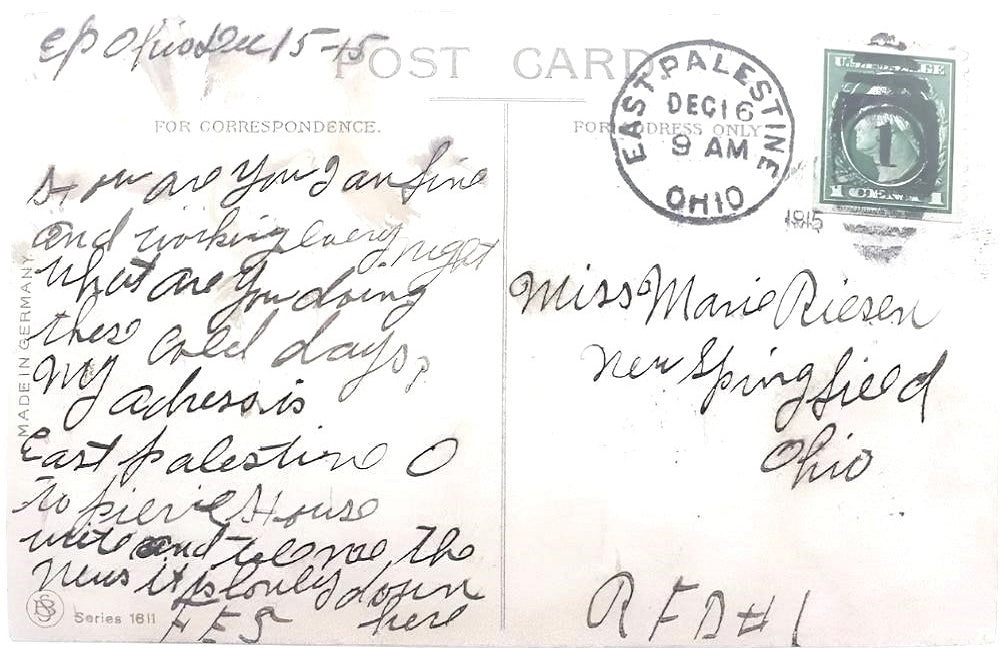 EP Ohio Dec 15-15
POST CARD
FOR CORRESPONDENCE.
FOR ADDRESS ONLY
EAST PALESTINE
DEC 16
9 AM
OHIO
1915
1
1 CENT 1
How are you I am fine
and working every night
what are you doing
these cold days,
My adress is
East palestine O
To pierie House
write and tele me the
News it is lonly down
here
FES
MADE IN GERMANY
Series 1611
Miss Marie Riesen
New Springfield
Ohio
RFD #1